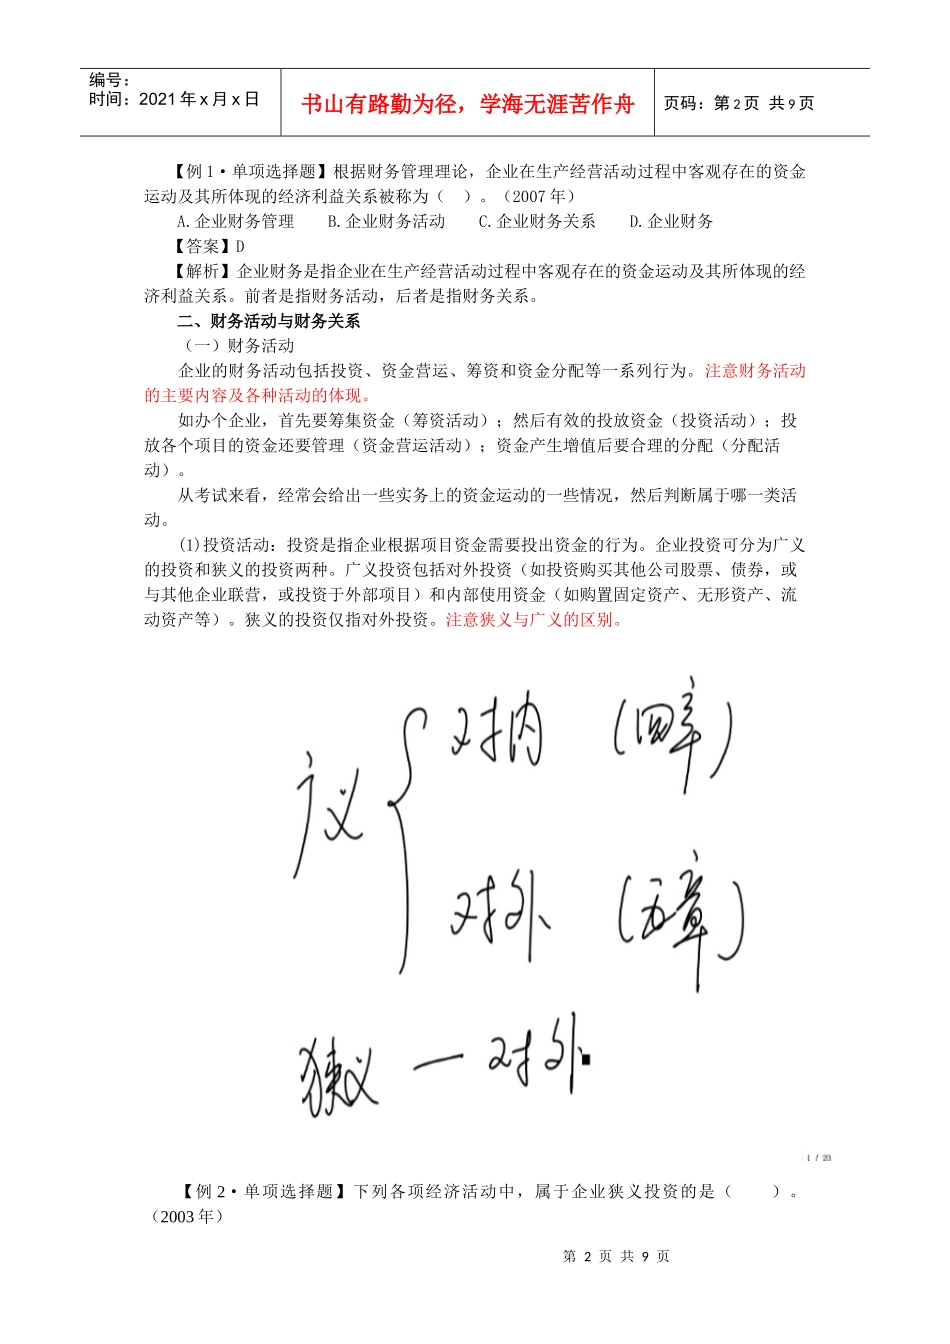 编号：
时间：2021年x月x日
书山有路勤为径，学海无涯苦作舟
页码：第2页 共9页
【例1·单项选择题】根据财务管理理论，企业在生产经营活动过程中客观存在的资金
运动及其所体现的经济利益关系被称为（　）。（2007年）
A.企业财务管理　　B.企业财务活动　　C.企业财务关系　　D.企业财务
【答案】D
【解析】企业财务是指企业在生产经营活动过程中客观存在的资金运动及其所体现的经
济利益关系。前者是指财务活动，后者是指财务关系。
二、财务活动与财务关系
（一）财务活动
企业的财务活动包括投资、资金营运、筹资和资金分配等一系列行为。注意财务活动
的主要内容及各种活动的体现。
如办个企业，首先要筹集资金（筹资活动）；然后有效的投放资金（投资活动）；投
放各个项目的资金还要管理（资金营运活动）；资金产生增值后要合理的分配（分配活
动）。
从考试来看，经常会给出一些实务上的资金运动的一些情况，然后判断属于哪一类活
动。
(1)投资活动：投资是指企业根据项目资金需要投出资金的行为。企业投资可分为广义
的投资和狭义的投资两种。广义投资包括对外投资（如投资购买其他公司股票、债券，或
与其他企业联营，或投资于外部项目）和内部使用资金（如购置固定资产、无形资产、流
动资产等）。狭义的投资仅指对外投资。注意狭义与广义的区别。
对内（四章）
广义
对外（五章）
狭义 — 对外
1 / 20
【例2·单项选择题】下列各项经济活动中，属于企业狭义投资的是（　　）。
（2003年）
第 2 页 共 9 页